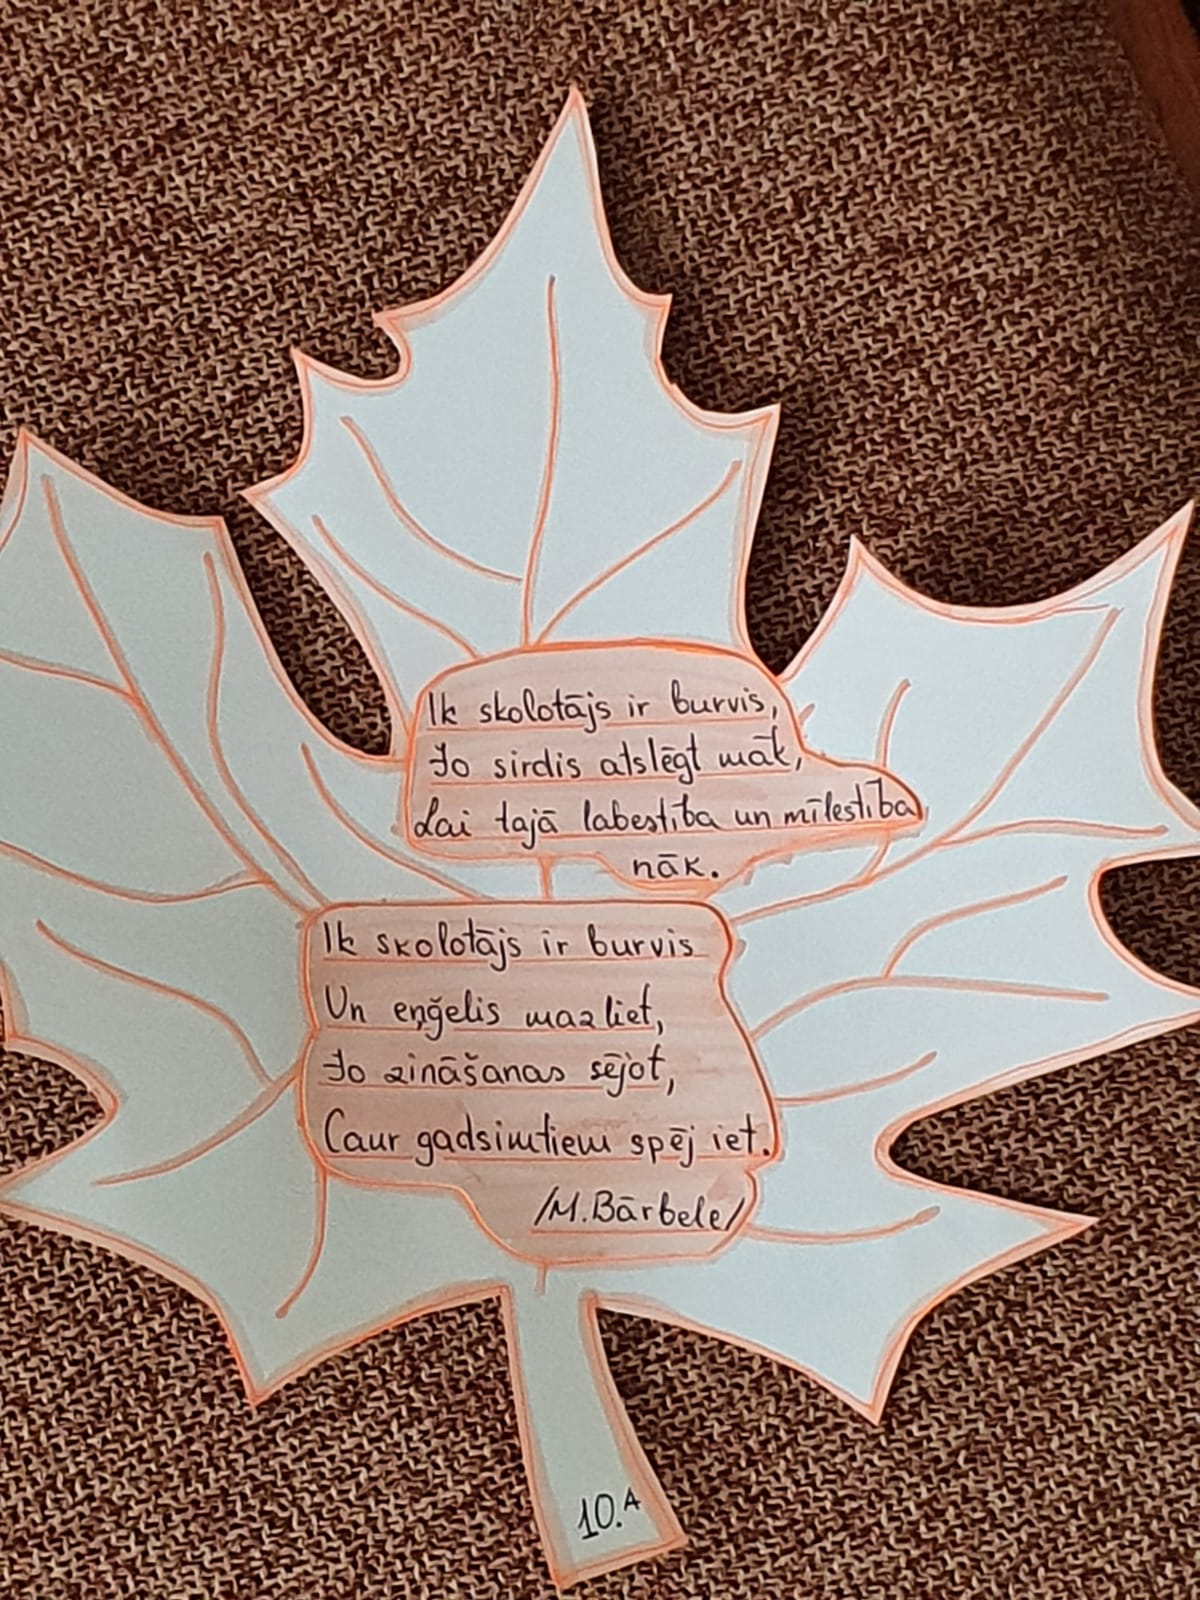 Ik skolotājs ir burvis,
Jo sirdis atslēgt māk,
Lai tajā labestība un mīlestība
nāk.
Ik skolotājs ir burvis
Un eņģelis mazliet,
Jo zināšanas sējot,
Caur gadsimtiem spēj iet.
/M.Bārbele/
10.A